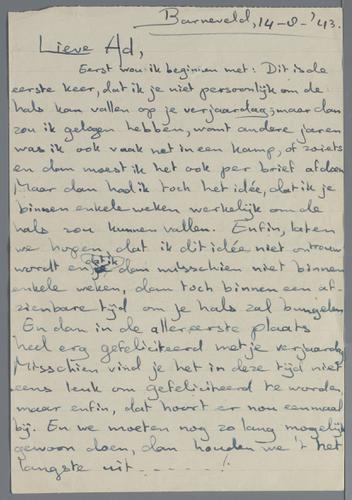 Barneveld, 14-8-'43.
Lieve Ad,
Eerst wou ik beginnen met: Dit is de
eerste keer, dat ik je niet persoonlijk om de
hals kan vallen op je verjaardag; maar dan
zou ik gelogen hebben, want andere jaren
was ik ook vaak net in een kamp, of zoiets
en dan moest ik het ook per brief afdoen.
Maar dan had ik toch het idée, dat ik je
binnen enkele weken werkelijk om de
hals zou kunnen vallen. Enfin, laten
we hopen, dat ik dit idée niet ontrouw
wordt en dat ik dan misschien niet binnen
enkele weken, dan toch binnen een af-
zienbare tijd om je hals zal bungelen
En dan in de allereerste plaats
heel erg gefeliciteerd met je verjaardag
Misschien vind je het in deze tijd niet
eens leuk om gefeliciteerd te worden
maar enfin, dat hoort er nou eenmaal
bij. En we moeten nog zo lang mogelijk
gewoon doen, dan houden we 't het
langste uit - - - - - - !